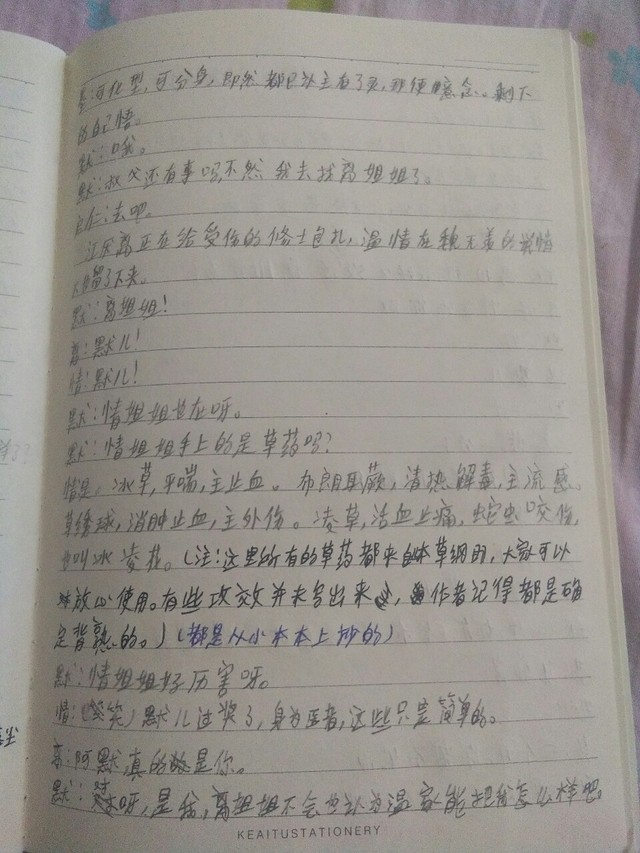 羡:可化型,可分身,即然都已认主有了灵,那便随念。剩下
的自己悟。
默:哦。
默:叔父还有事吗,不然我去找离姐姐了。
启仁:去吧。
江厌离正在给受伤的修士包扎,温情在魏无羡的
留了下来。
默:离姐姐!
离:默儿!
情:默儿!
默:情姐姐也在呀。
默:情姐姐手上的是草药吗?
情:是,冰草,平喘,主止血。布朗耳蕨,清热解毒,主流感。
草绣球,消肿止血,主外伤。凌草,活血止痛,蛇虫咬伤,
也叫冰凌花。(注:这里所有的草药都来自本草纲目,大家可以
放心使用。有些攻效并未写出来,作者记得都是确
定背熟的。)(都是从小本本上抄的)
默:情姐姐好厉害呀。
情:(笑笑)默儿过奖了,身为医者,这些只是简单的。
离:阿默真的是你。
默:对呀,是我,离姐姐不会也认为温家能把我怎么样吧。
KEAITUSTATIONERY